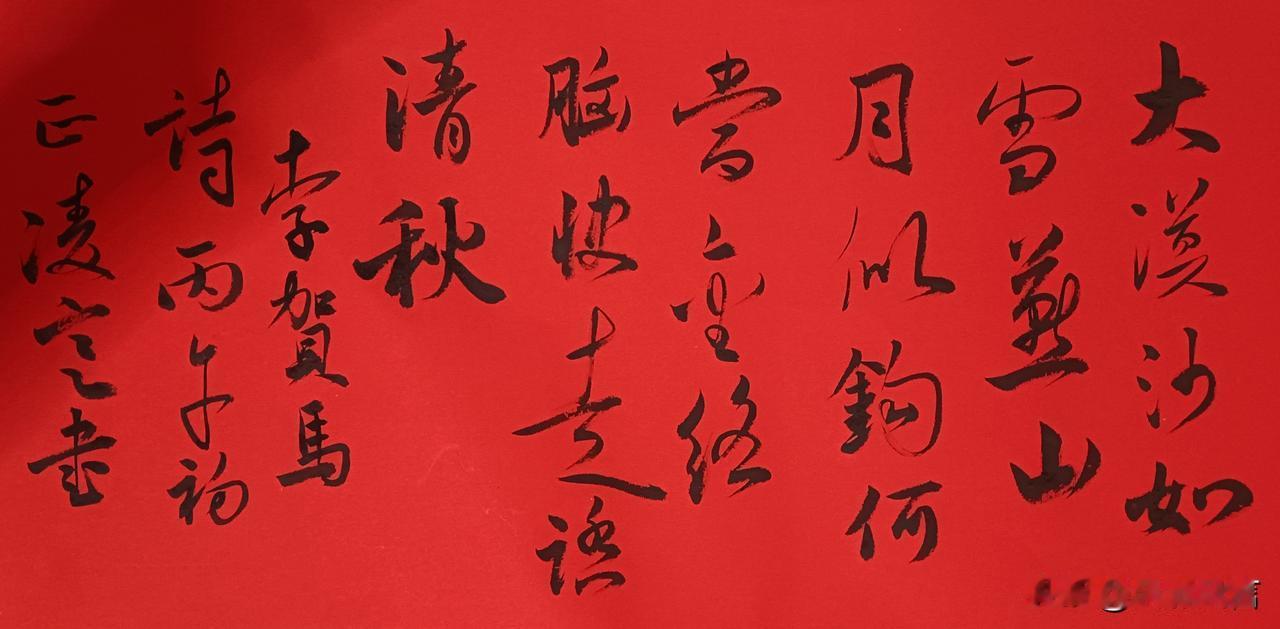 大漠沙如
雪燕山
月似鉤何
當金絡
腦快走踏
清秋
李賀馬
詩丙午初
正凌書